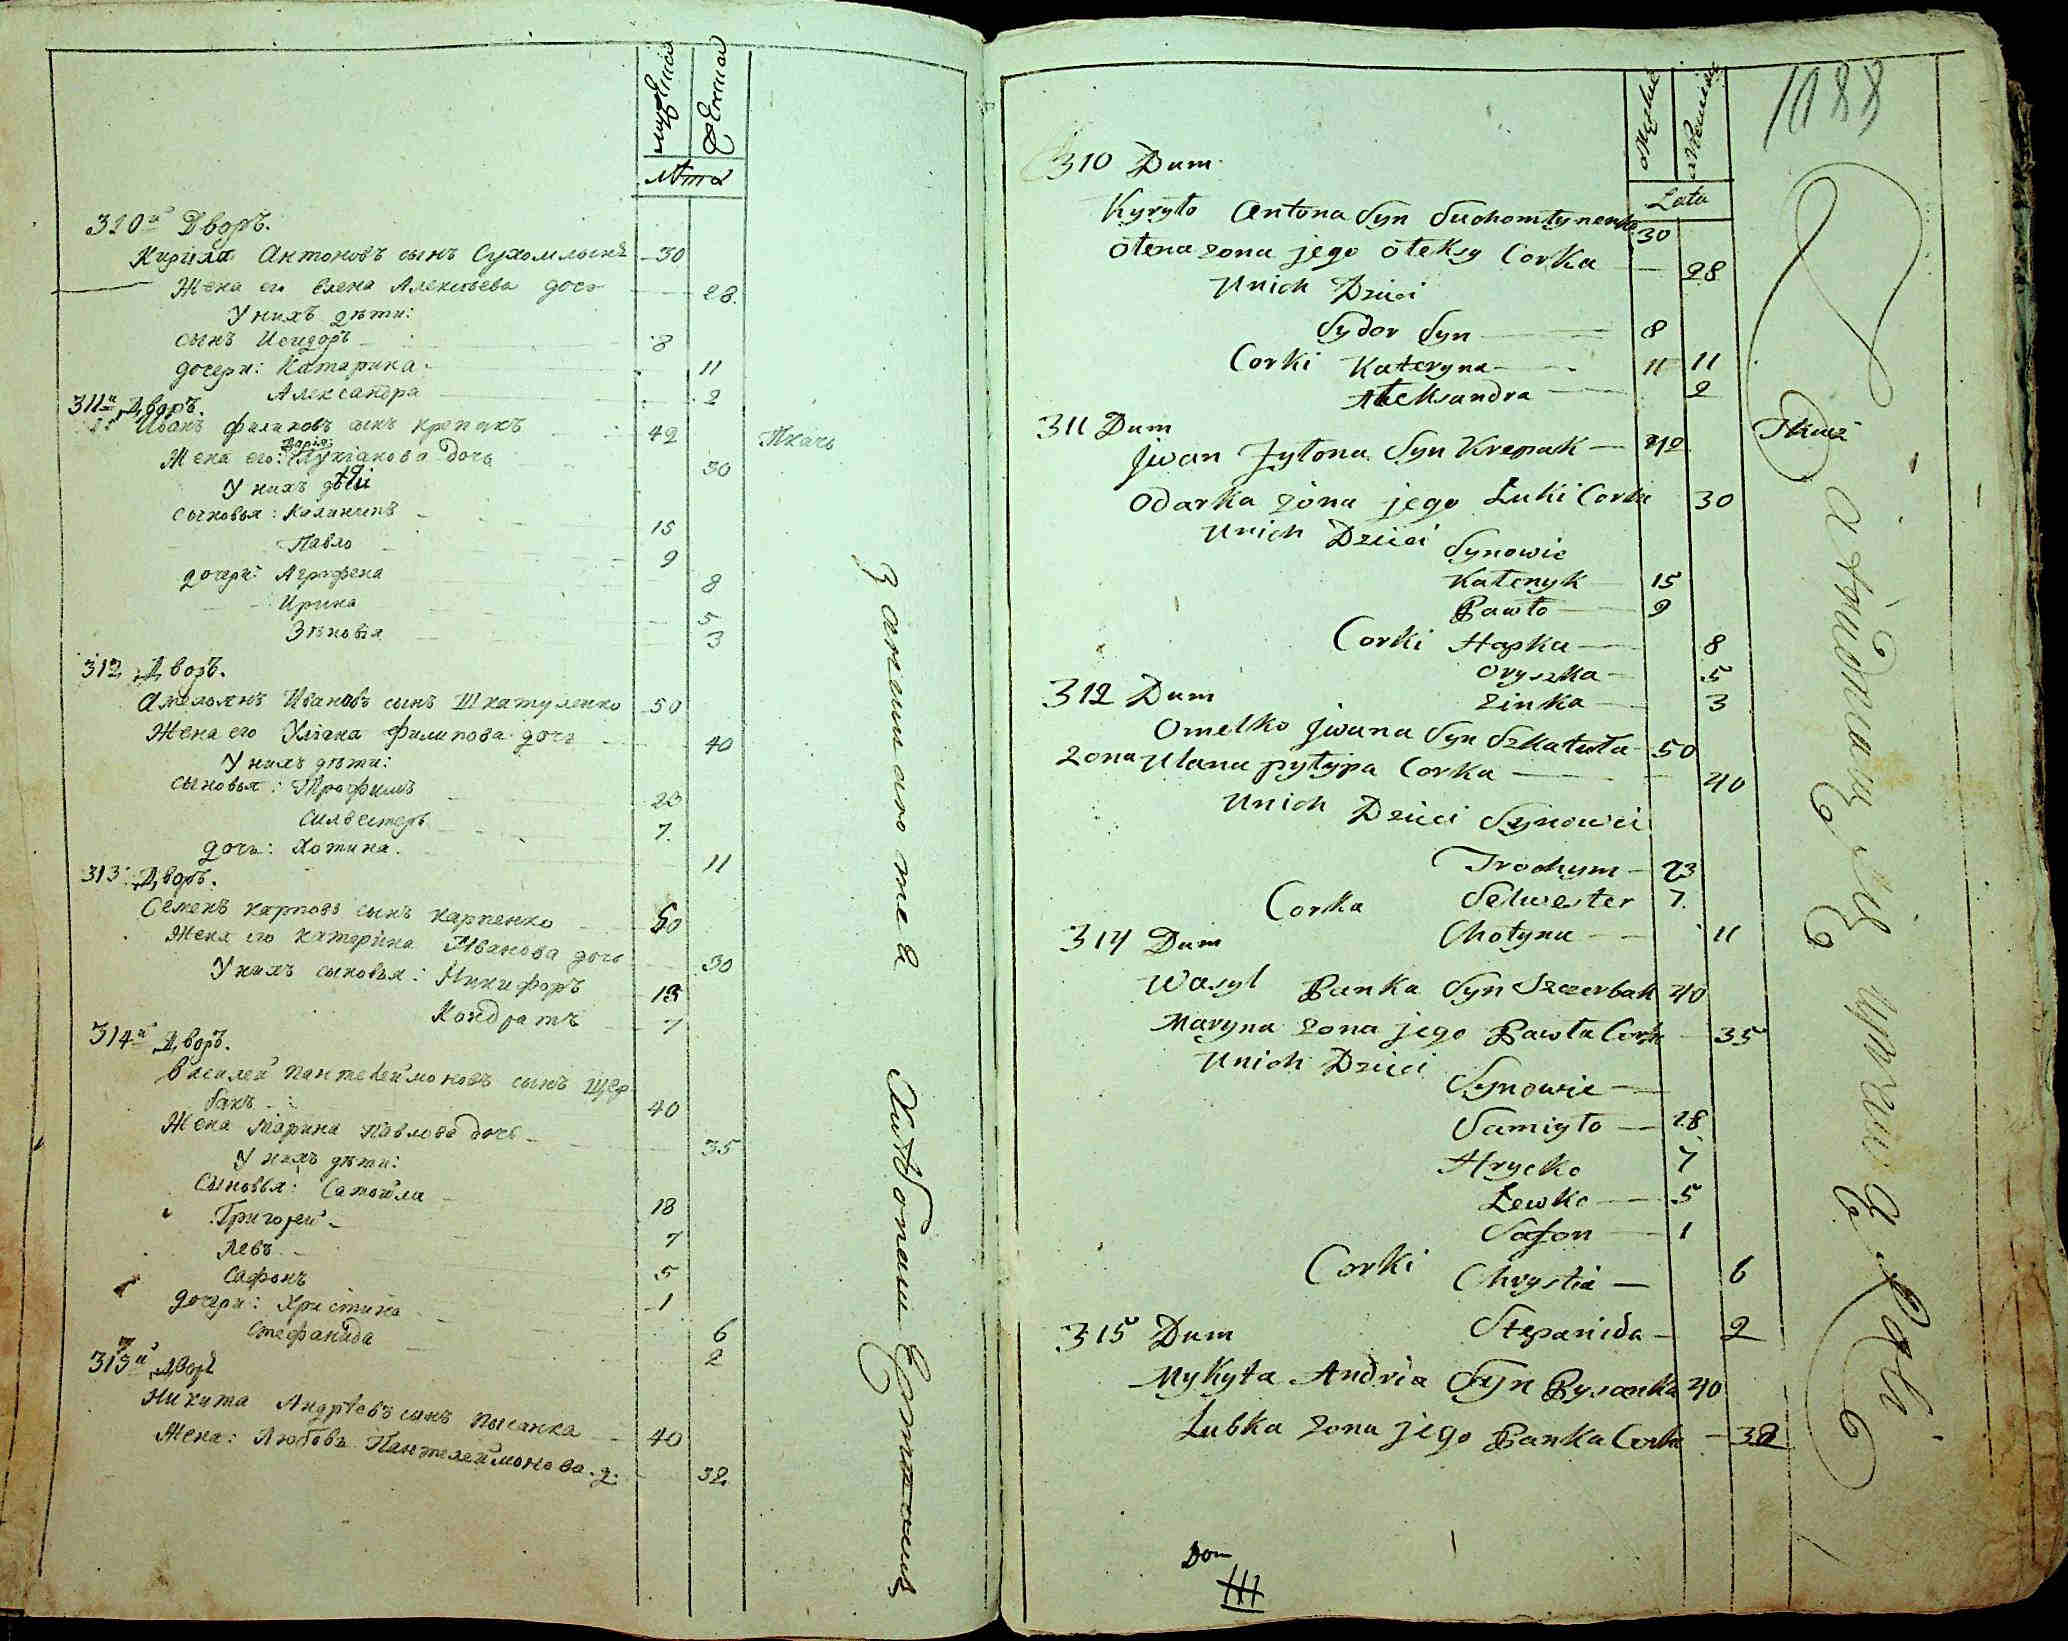 мужеска
женска
лѣта
310й Дворъ.
Кирила Антоновъ сынъ Сухомлынъ 30
Жена его Елена Алексѣева дочь 28
У нихъ дѣти:
сынъ Исидоръ 8
дочери: Катерина 11
Александра 2
311й Дворъ.
Иванъ Филиповъ сынъ Крепакъ 42 Ткачь
Дарія
Жена его: Лукіанова дочь 30
У нихъ дѣти
сыновья: Калиникъ 15
Павло 9
дочери: Агрифена 8
Ирина 5
Зѣновія 3
312 Дворъ.
Амелянъ Ивановъ сынъ Шкатуленко 50
Жена его Уліана Филипова дочь 40
У нихъ дѣти:
сыновья: Трофимъ 23
Силвестеръ 7
дочь: Хотина 11
313 Дворъ.
Семенъ Карповъ сынъ Карпенко 50
Жена его Катерина Иванова дочь 30
У нихъ сыновья: Никифоръ 13
Кондратъ 7
314й Дворъ.
Василей Пантелеймоновъ сынъ Щер
бакъ 40
Жена Марина Павлова дочь 35
У нихъ дѣти:
Сыновья: Самойла 18
Григорей 7
Левъ 5
Сафонъ 1
дочери: Христина 6
Стефанида 2
315й Дворъ
Никита Андрѣевъ сынъ Писанка 40
Жена: Любовь Пантелеймонова д. 32
Занимаются Хлѣбопаш
1088
Męskie
Lata
310 Dum
Kyryło Antona Syn Suchomłynenko 30
Ołena zona jego Ołeksy Corka 28
Unich Dzieci
Sydor Syn 8
Corki Kateryna 11 11
Ałeksandra 2
311 Dum
Jwan Fyłona Syn Krepak 42 Tkacz
Odarka zona jego Łuki Corka 30
Unich Dzieci Synowie
Kałenyk 15
Pawło 9
Corki Hapka 8
Oryszka 5
312 Dum Zinka 3
Omelko Jwana Syn Szkatuła 50
Zona Ulana pyłypa Corka 40
Unich Dzieci Synowei
Trochym 23
Corka Selwester 7
314 Dum Chotyna 11
Wasyl Panka Syn Szczerbak 40
Maryna zona jego Pawła Corka 35
Unich Dzieci
Synowie
Samiyło 18
Hrycko 7
Lewko 5
Safon 1
Corki Chrystia 6
315 Dum Stepanida 2
Mykyta Andria Syn Pysanka 40
Lubka zona jego Panka Corka 32
Zatrudniaią się uprawą Roli
Dom